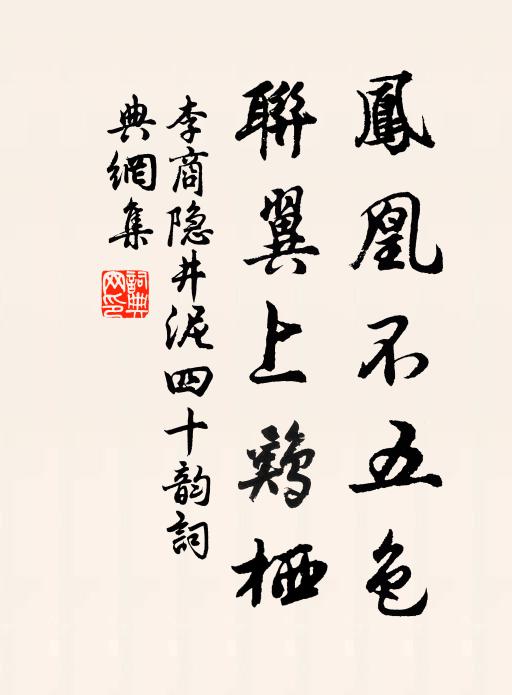 鳳凰不五色
聯翼上鷄栖
李商隐井泥四十韵詞
典網集
詞典
网印